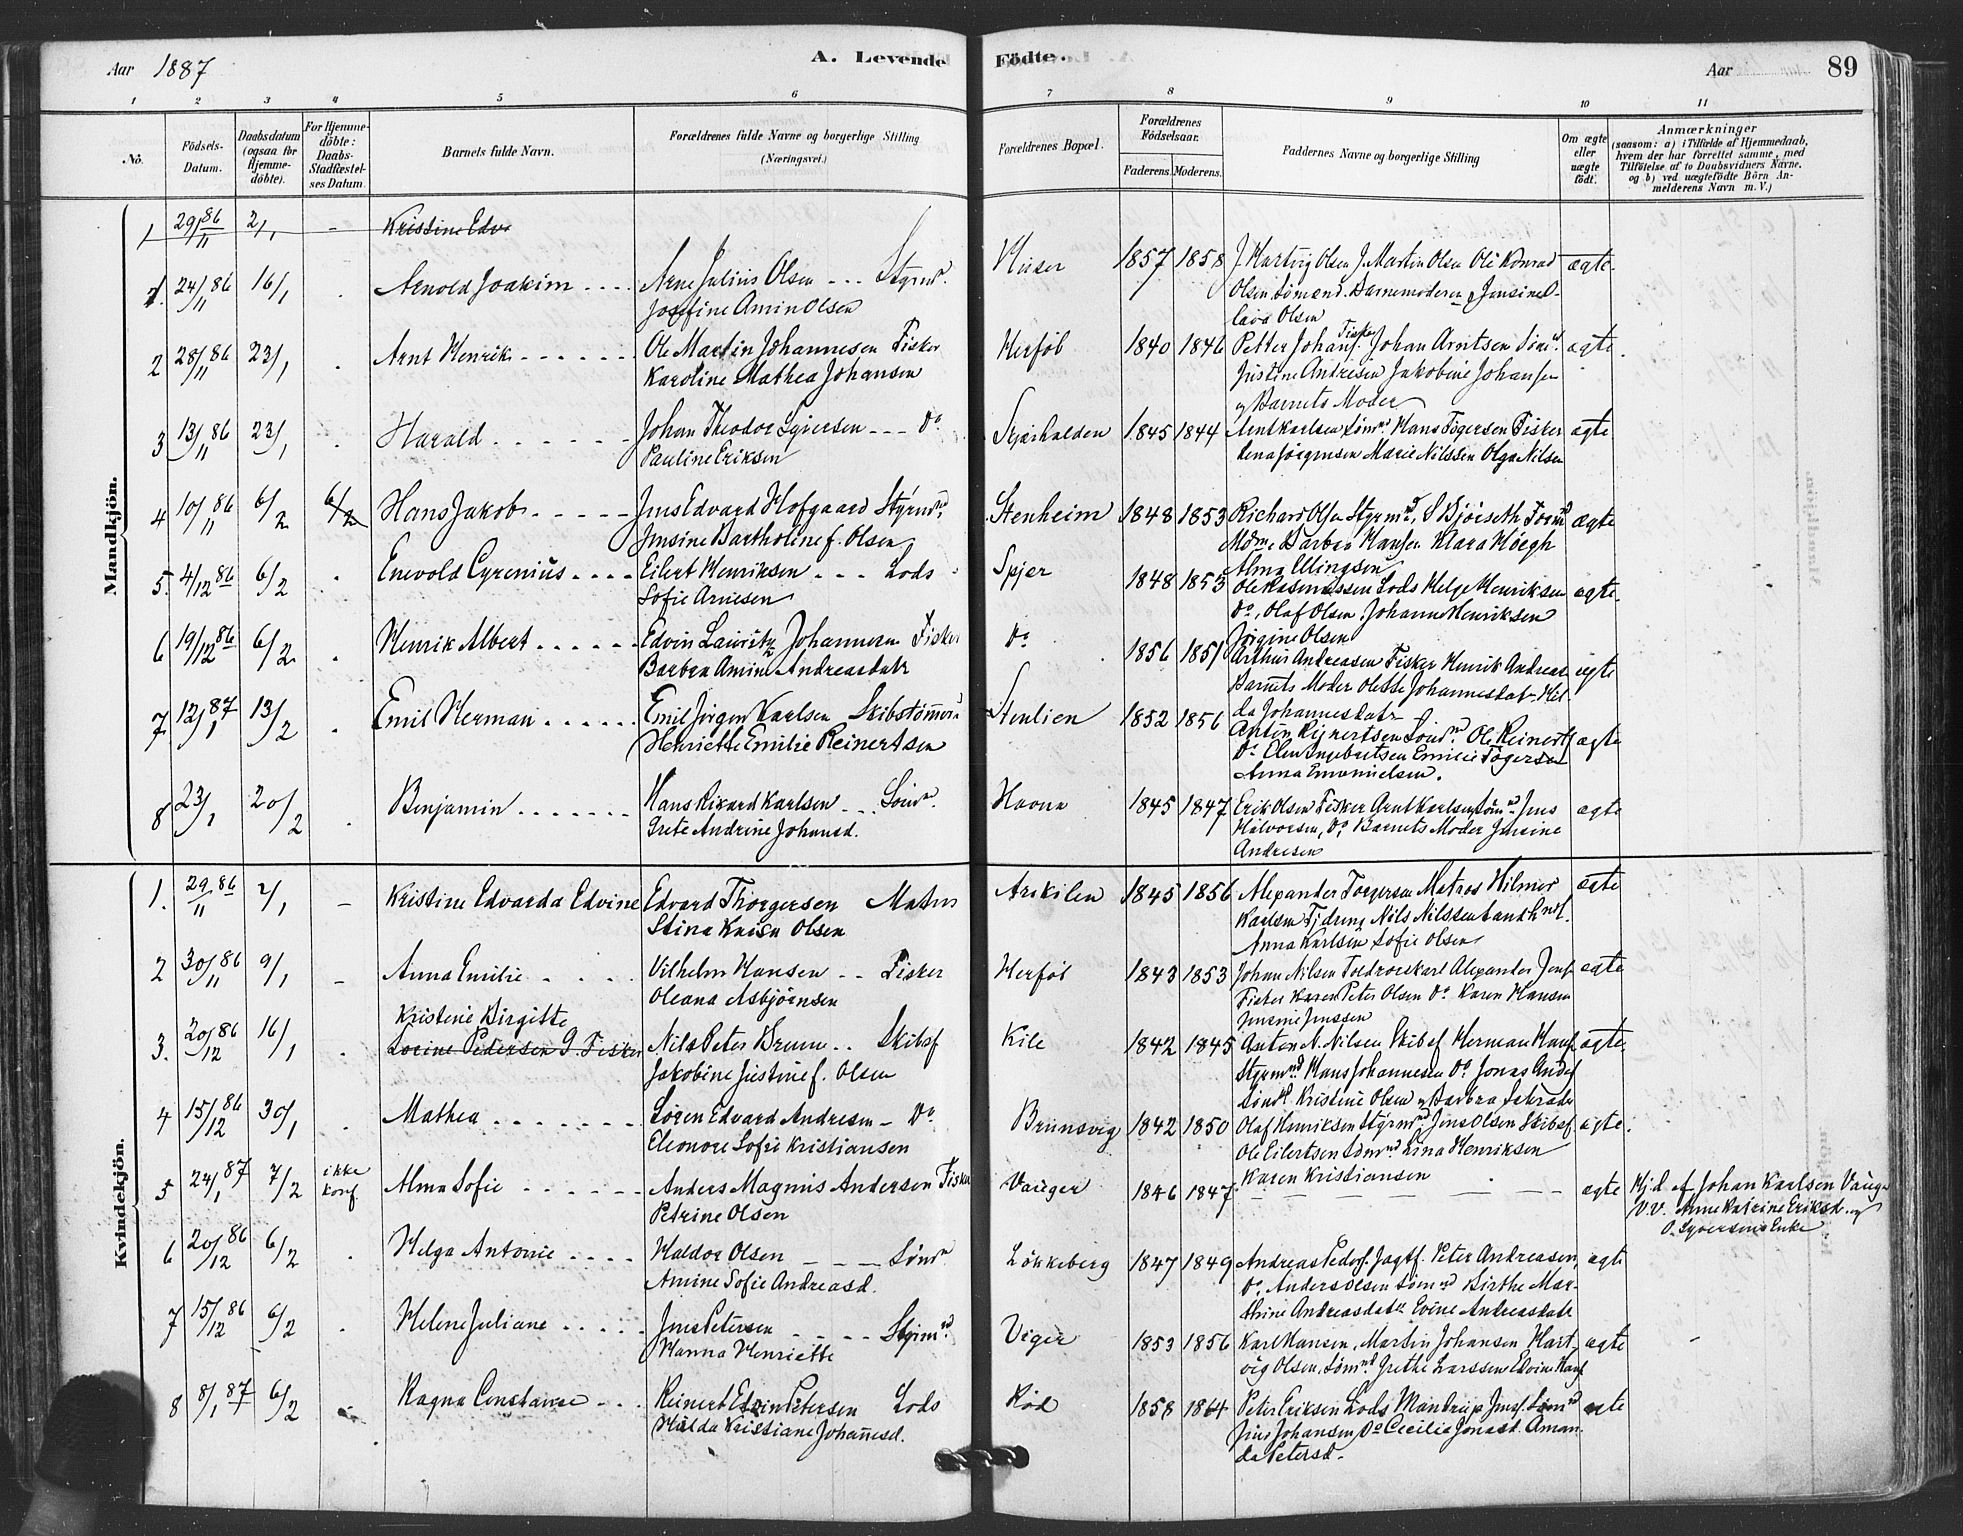 Aar 1887 A. Levende Födte. Aar 89
1 2 3 4 5 6 7 8 9 10 11
No. Födsels-Datum. Daabsdatum (ogsaa for Hjemme-döbte). For Hjemme-döbte: Daabs-Stadfæstel-ses Datum. Barnets fulde Navn. Forældrenes fulde Navne og borgerlige Stilling (Næringsvei.) Forældrenes Bopæl. Forældrenes Födselsaar. Faderens. Moderens. Faddernes Navne og borgerlige Stilling Om ægte eller uægte födt. Anmærkninger (saasom: a) i Tilfælde af Hjemmedaab, hvem der har forrettet samme, med Tilföielse af to Daabsvidners Navne. og b) ved uægtefödte Börn An-melderens Navn m. V.)
Mandkjön.
1 29/11 86 2/1 - Kristine Edv
1. 24/11 86 16/1 . Arnold Joakim Arne Julius Olsen --- Styrmd. Huser 1857 1858 J. Hartvig Olsen J. Martin Olsen Ole Konrad ægte
Josefine Amin Olsen Olsen Sømænd. Barnemoderen, Jensine O-
lava Olsen
2 28/11 86 23/1 . Arnt Henrik Ole Martin Johannesen Fisker Herføl 1840 1846 Petter Johans. Fisker Johan Arntsen Sømd. ægte
Karoline Mathea Johansen Justine Andresen Jakobine Johansen
og Barnets Moder
3 13/11 86 23/1 . Harald Johan Theodor Syversen --- Do Skjærhalden 1845 1844 Arnt Karlsen Sømd. Hans Togersen Fisker ægte
Pauline Eriksen Lena Jørgensen Marie Nilssen Olga Nilsen
4 10/11 86 6/2 6/2 Hans Jakob Jens Edvard Hofgaard Styrmd. Stenheim 1848 1853 Richard Olsen Styrmd. S Bjørseth ægte
Jensine Bartholine f. Olsen Mdme Barbra Hansen Klara Høegh
Alma Ellingsen
5. 4/12 86 6/2 . Enevold Cyrenius Eilert Henriksen --- Lods Spjær 1848 1853 Ole Rasmussen Lods Helge Henriksen ægte
Sofie Arnesen Do, Olaf Olsen, Johanne Henriksen
Jørgine Olsen
6 19/12 86 6/2 . Henrik Albert Edvin Lauritz Johannesen Fisker Do 1856 1851 Arthur Andreasen Fisker Henrik Andreas ægte
Barbra Amine Andreasdatr Barnets Moder Olette Johannesdatr Hil-
da Johannesdatr
7 12/1 87 13/2 . Emil Herman Emil Jørgen Karlsen Skibstømmerm. Stenlien 1852 1856 Anton Reinertsen Sømd. Ole Reinert ægte
Henriette Emilie Reinertsen Do Elen Ingebretsen Emilie Togersen
Anna Emanuelsen.
8 23/1 20/2 . Benjamin Hans Rikard Karlsen -- Sømd. Havna 1845 1847 Erik Olsen Fisker Arnt Karlsen Sømd Jens ægte
Grete Andrine Johansd. Halvorsen, Do Barnets Moder Jensine
Andresen
Kvindekjön.
1. 29/11 86 2/1 - Kristine Edvarda Edvine Edvard Thorgersen Matros Arekilen 1845 1856 Alexander Torgersen Matros Hilmer ægte
Stina Karin Olsen Karlsen Tjdreng Nils Nilssen Landhndl.
Anna Karlsen Sofie Olsen
2 30/11 86 9/1 - Anna Emilie Vilhelm Hansen -- Fisker Herføl 1843 1853 Johan Nilsen Toldroerkarl Alexander Jens ægte
Oleana Asbjørnsen Fisker Karen Peter Olsen Do Karen Hansen
Jensine Jenssen
Kristine Birgitte
3. 20/12 86 16/1 . Lovine Pedersen G. Fisker Nils Peter Bruun .. Skibsf Kile 1842 1845 Anton N. Nilsen Skibsf Herman Hans ægte
Jakobine Justine f. Olsen Styrmd Hans Johannesen Do Jonas Anders
Sømd. Kristine Olsen og Barbra Schrøder
4 15/12 86 30/1 . Mathea Søren Edvard Andresen - Do Brunsvig 1842 1850 Olaf Henriksen Styrmd Jens Olsen Skibsf ægte
Eleonore Sofie Kristiansen Ole Eilertsen Sømnd Lina Henriksen
Karen Kristiansen
5 24/1 87 7/2 ikke konf Alma Sofie Anders Magnus Andersen Fisker Vauger 1846 1847 - - - ægte Hjd af Johan Karlsen Vauger
Petrine Olsen V.V. Anne Katrine Eriksd. og
O. Syversens Enke.
6 20/12 86 6/2 . Helga Antonie Haldor Olsen --- Sømd Løkkeberg 1847 1849 Andreas Peders. Jagtf. Peter Andreasen, ægte
Amine Sofie Andreasd. Do. Anders Olsen Sømnd Birthe Mar-
thine Andreasdatr Evine Andreasdatr
7 15/12 86 6/2 . Helene Juliane Jens Petersen Styrmd. Viger 1853 1856 Karl Hansen, Martin Johansen Hart- ægte
Hanna Henriette vig Olsen, Sømnd Grethe Larssen Edvine Hans
8 8/1 87 6/2 . Ragna Constance Reinert Edvin Petersen Lods Rød 1858 1864 Peter Eriksen Lods Mandrup Jens. Sømnd ægte
Hilda Kristiane Johannesd. Jens Johansen Do Cecilia Jonasd. Aman-
da Petersd.